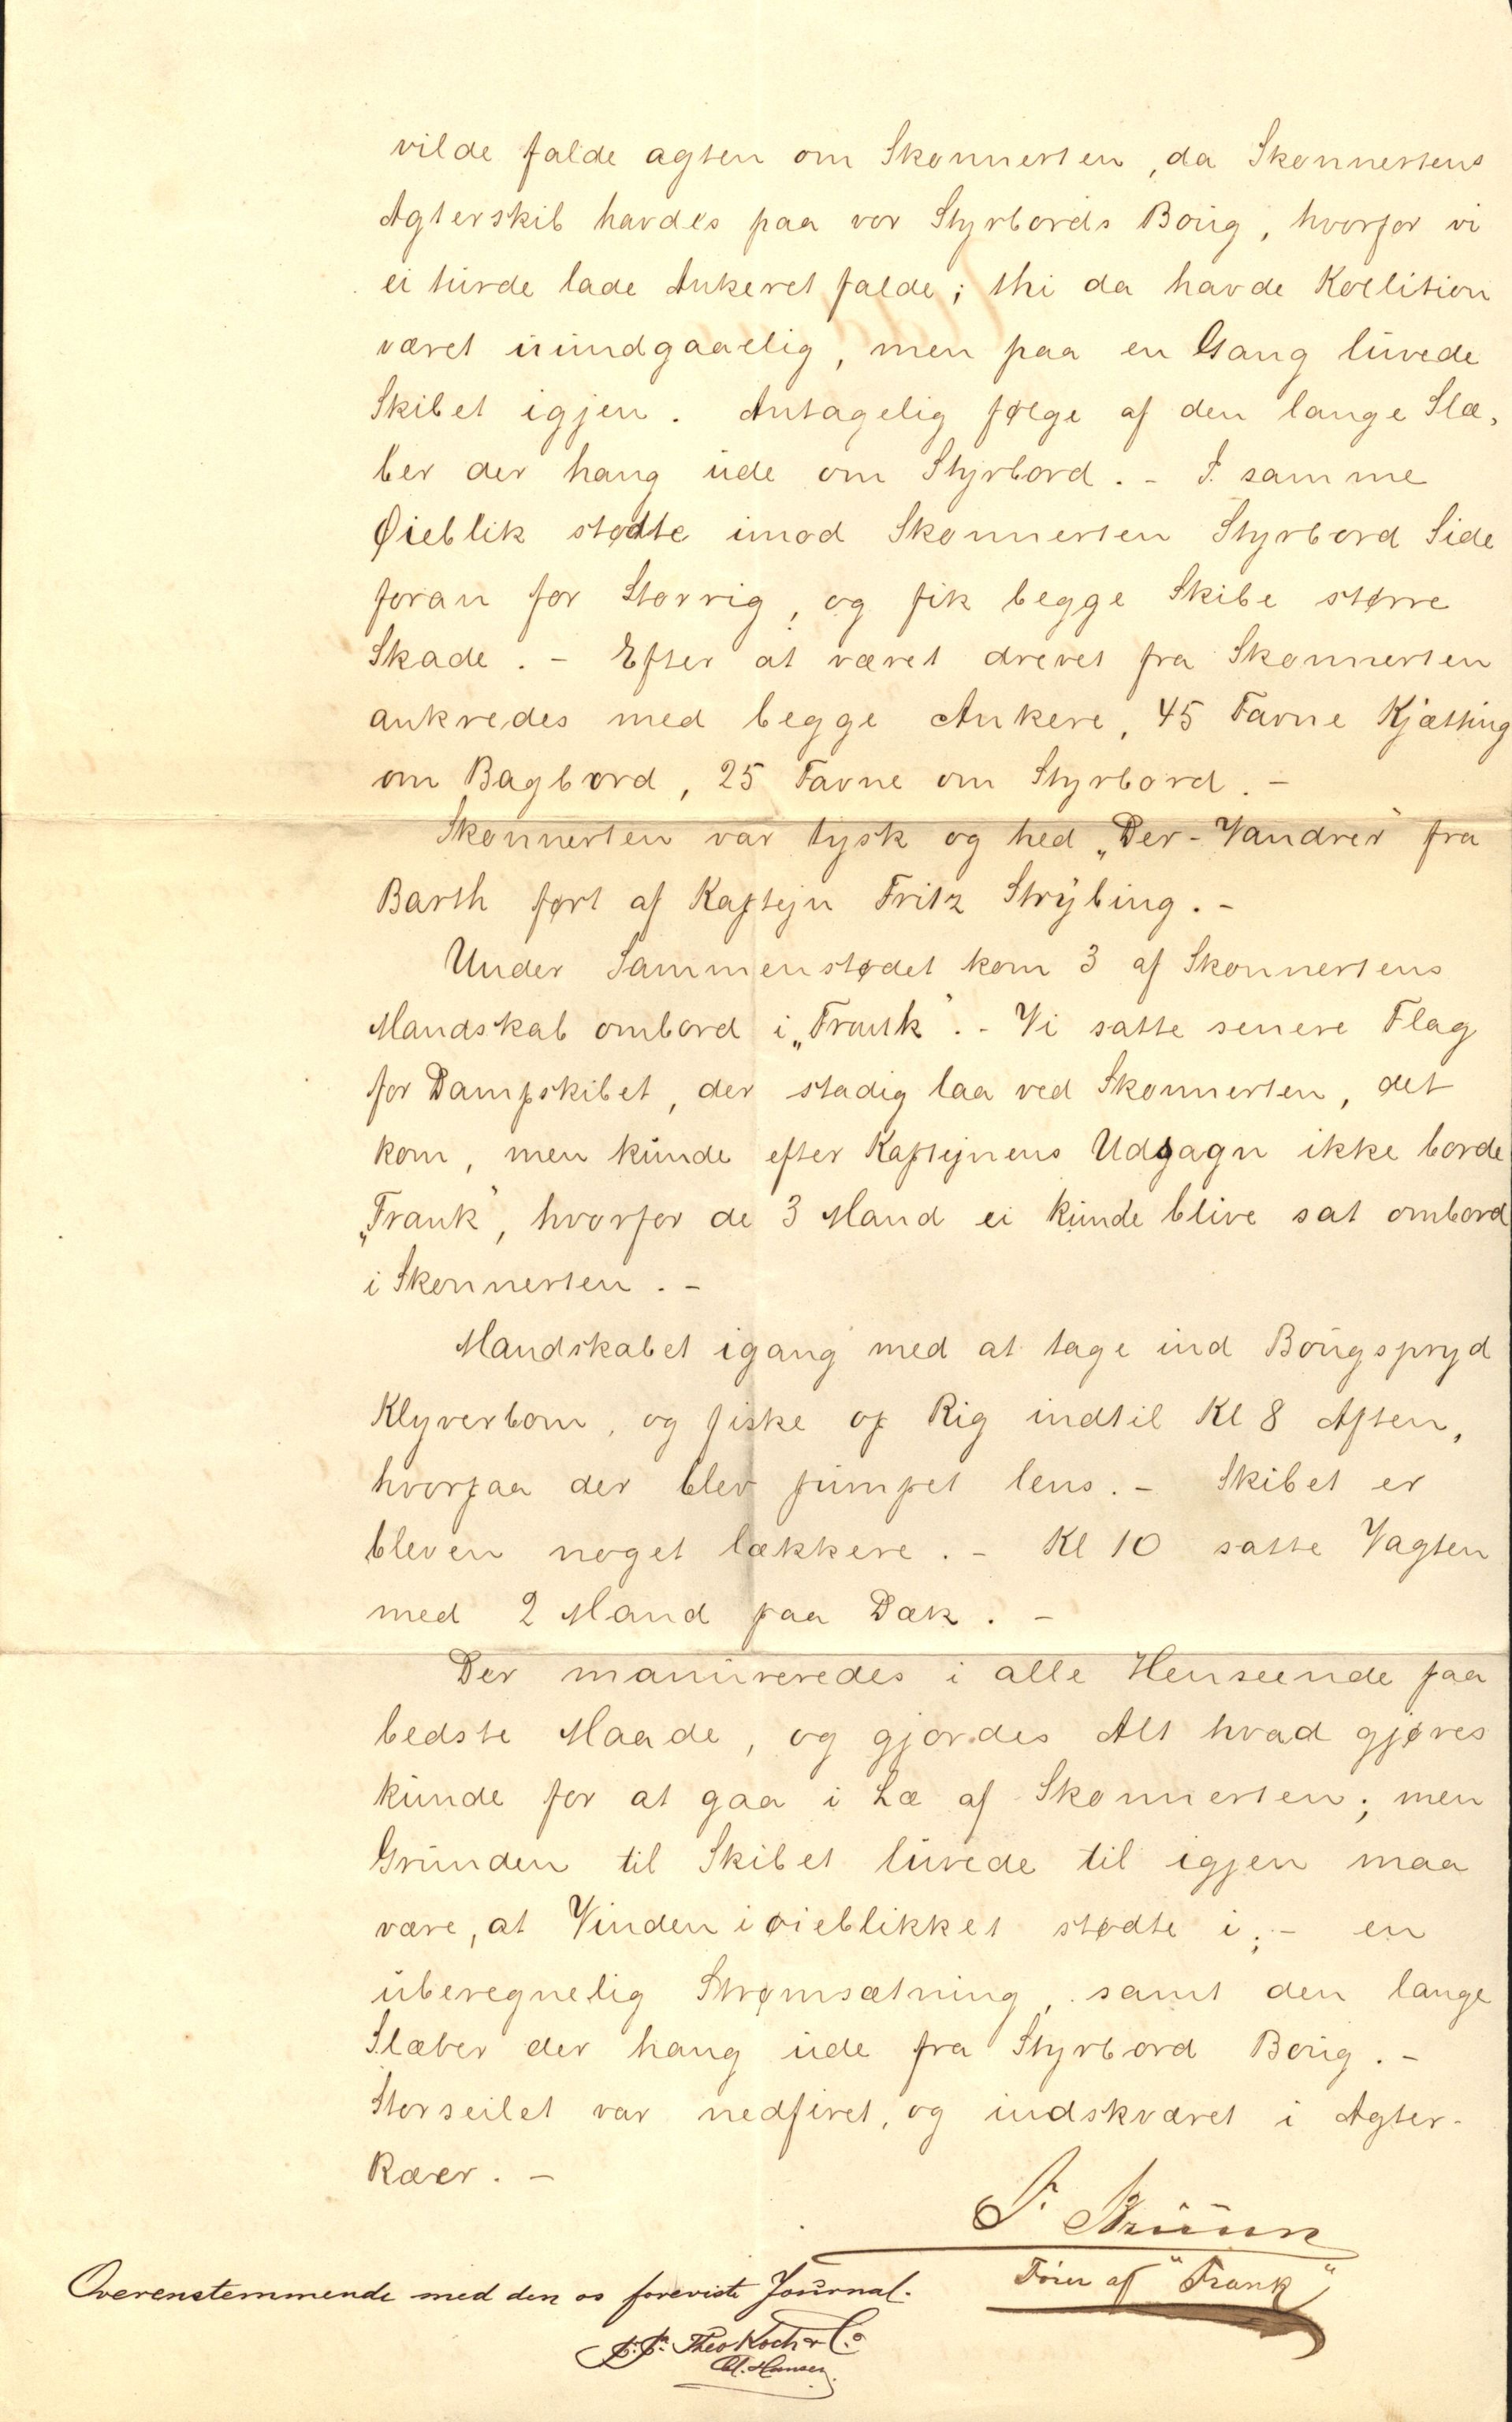 vilde falde agten om Skonnerten, da Skonnertens
Agterskib havdes paa vor Styrbords Boug, hvorfor vi
ei turde lade Ankeret falde; thi da havde Kollition
været uundgaaelig, men paa en Gang luvede
Skibet igjen. Antagelig følge af den lange Slæ-
ber der hang ude om Styrbord. - I samme
Øieblik stødte imod Skonnerten Styrbord Side
foran for Storrig, og fik begge Skibe større
Skade. - Efter at været drevet fra Skonnerten
ankredes med begge Ankere, 45 Favne Kjætting
om Bagbord, 25 Favne om Styrbord. -
Skonnerten var tysk og hed „Der-Vandrer" fra
Barth ført af Kaptejn Fritz Strybing. -
Under Sammenstødet kom 3 af Skonnertens
Mandskab ombord i „Frank". - Vi satte senere Flag
for Dampskibet, der stadig laa ved Skonnerten, det
kom, men kunde efter Kaptejnens Udsagn ikke borde
„Frank", hvorfor de 3 Mand ei kunde blive sat ombord
i Skonnerten. -
Mandskabet igang med at tage ind Bougspryd
Klyverbom, og fiske op Rig indtil Kl 8 Aften,
hvorpaa der blev pumpet lens. - Skibet er
bleven noget lækkere. - Kl 10 satte Vagten
med 2 Mand paa Dæk. -
Der manuveredes i alle Henseende paa
bedste Maade, og gjordes Alt hvad gjøres
kunde for at gaa i Læ af Skonnerten; men
Grunden til Skibet luvede til igjen maa
være, at Vinden i øieblikket stødte i; - en
uberegnelig Strømsætning, samt den lange
Slæber der hang ude fra Styrbord Boug. -
Storseilet var nedfiret, og indskværet i Agter-
Ræer. -
Fører af "Frank"
Overenstemmende med den os foreviste Journal.
p.p. Theo Koch & Co
M. Hansen